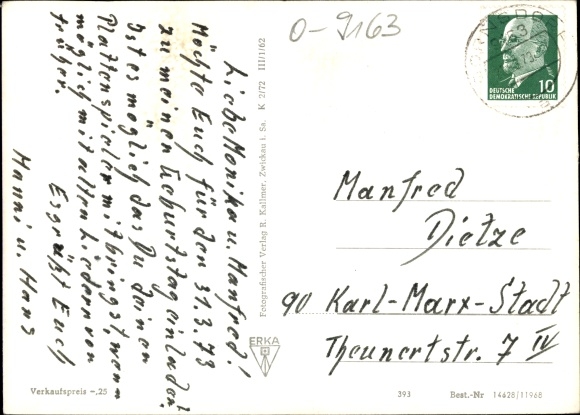 Liebe Monika u. Manfred!
Möchte Euch für den 31.3.73
zu meinen Geburtstag einladen.
Ist es möglich das Du deinen
Plattenspieler mitbringst, wenn
möglich mit allen Liedern von
früher.
Es grüßt Euch
Hanni u. Hans
O-9163
Fotografischer Verlag R. Kallmer, Zwickau i. Sa. K 2/72 III/1/62
10
DEUTSCHE
DEMOKRATISCHE REPUBLIK
Manfred
Dietze
90 Karl-Marx-Stadt
Theunertstr. 7 IV
ERKA
Verkaufspreis -,25
393 Best.-Nr 14628/11968